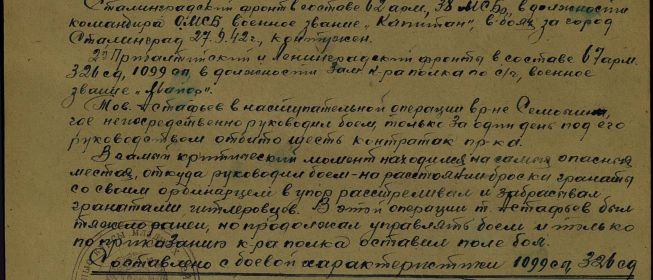 Сталинградский фронт в составе 62 арм, 38 МСБр, в должности
командира ОМСБ военное звание "Капитан", в боях за город
Сталинград 27.9.42г., контужен.
2й Прибалтийский и Ленинградский фронты в составе 67 арм.
326 сд, 1099 сп, в должности Зам. к-ра полка по с/ч, военное
звание "Майор".
Тов. Астафьев в наступательной операции в р-не
где непосредственно руководил боем, только за один день под его
руководством отбито шесть контратак пр-ка.
В самый критический момент находился на самых опасных
местах, откуда руководил боем - на расстоянии броска гранаты
со своим ординарцем в упор расстреливал и забрасывал
гранатами, гитлеровцев. В этой операции т. Астафьев был
тяжело ранен, но продолжал управлять боем и только
по приказанию к-ра полка оставил поле боя.
Составлено с боевой характеристики 1099 сп 326 сд